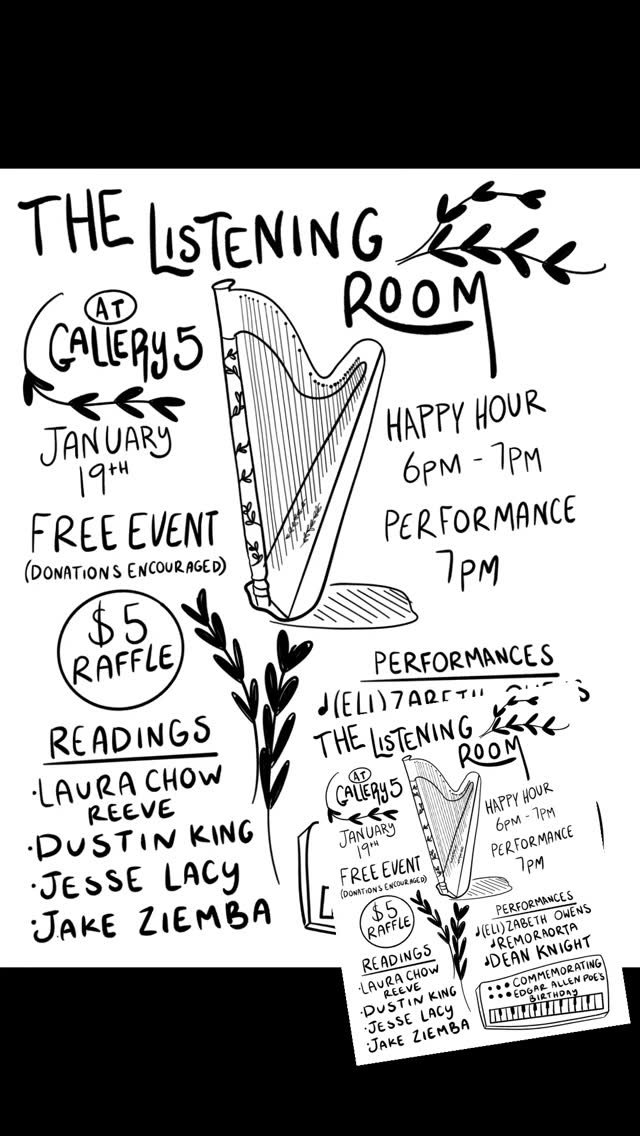 THE LISTENING
ROOM
AT
GALLERY 5
JANUARY
19TH
FREE EVENT
(DONATIONS ENCOURAGED)
$5
RAFFLE
HAPPY HOUR
6PM - 7PM
PERFORMANCE
7PM
READINGS
·LAURA CHOW
REEVE
·DUSTIN KING
·JESSE LACY
·JAKE ZIEMBA
PERFORMANCES
♩(ELI)ZABETH OWENS
THE LISTENING
ROOM
AT
GALLERY 5
JANUARY
19TH
FREE EVENT
(DONATIONS ENCOURAGED)
$5
RAFFLE
HAPPY HOUR
6PM - 7PM
PERFORMANCE
7PM
READINGS
·LAURA CHOW
REEVE
·DUSTIN KING
·JESSE LACY
·JAKE ZIEMBA
PERFORMANCES
♩(ELI)ZABETH OWENS
♩REMORAORTA
♩DEAN KNIGHT
COMMEMORATING
EDGAR ALLEN POE'S
BIRTHDAY